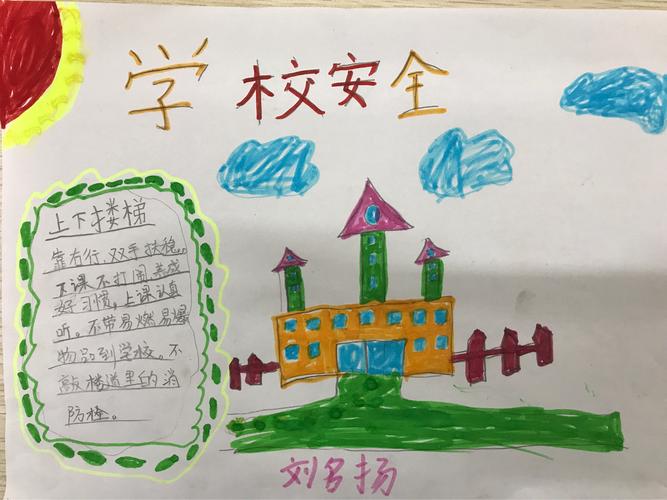 学校安全
上下搂梯
靠右行，双手扶稳。
下课不打闹养成
好习惯，上课认真
听。不带易燃易爆
物品到学校。不
敲楼道里的消
防栓。
刘名扬